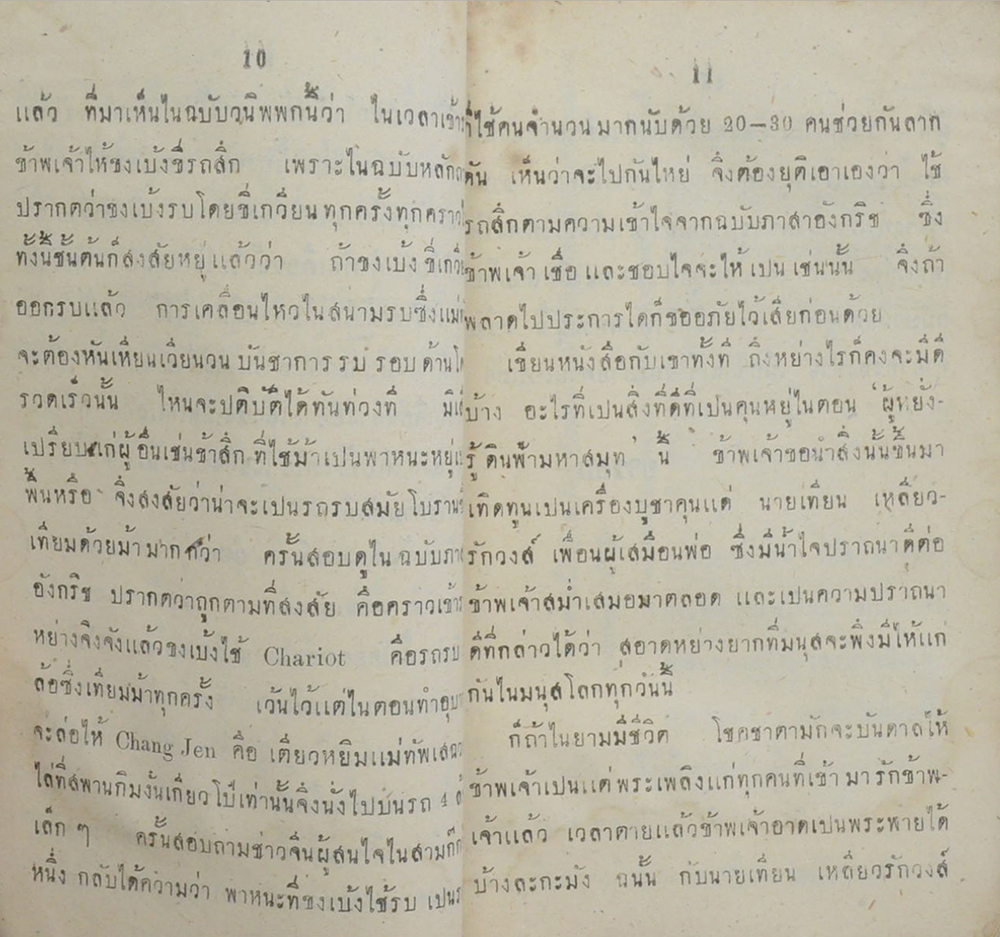 10
แล้ว ที่มาเห็นในฉบับวนิพพกนี้ว่า ในเวลาเข้า
ข้าพเจ้าให้ขงเบ้งขี่รถสึก เพราะไนฉบับหลัก
ปรากตว่าขงเบ้งรบโดยขี่เกวียนทุกครั้งทุกคราว
ทั้งนี้ชั้นต้นก็สงสัยหยู่แล้วว่า ถ้าขงเบ้งขี่เกวี
ออกรบแล้ว การเคลื่อนไหวไนสนามรบซึ่งแม่
จะต้องหันเหียนเวียนวน บันชาการ รบ รอบ ด้าน
รวดเร็วนั้น ไหนจะปติบัติได้ทันท่วงที มิเ
เปรียบแก่ผู้อื่นเช่นข้าสึก ที่ไช้ม้าเปนพาหนะหยู่
พื้นหรือ จึ่งสงสัยว่าน่าจะเปนรถรบสมัยโบราน
เทียมด้วยม้ามากกว่า ครั้นสอบดูไนฉบับภา
อังกริช ปรากตว่าถูกตามที่สงสัย คือคราวเข้า
หย่างจิงจังแล้วขงเบ้งไช้ Chariot คือรถรบ
ล้อซึ่งเทียมม้าทุกครั้ง เว้นไว้แต่ไนตอนทำอุบ
จะล่อไห้ Chang Jen คือ เตียวหยิมแม่ทัพเสฉว
ไล่ที่สพานกิมงั้นเกี้ยวโบ๊เท่านั้นจึ่งนั่งไปบนรถ 4 ล้
เล็ก ๆ ครั้นสอบถามชาวจีนผู้สนไจไนสามก๊ก
หนึ่ง กลับได้ความว่า พาหนะที่ขงเบ้งไช้รบ เปนร
11
ที่ไช้คนจำนวนมากนับด้วย 20—30 คนช่วยกันลาก
ดัน เห็นว่าจะไปกันไหย่ จึ่งต้องยุติเอาเองว่า ไช้
รถสึกตามความเข้าไจจากฉบับภาสาอังกริช ซึ่ง
ข้าพเจ้า เชื่อ และชอบไจจะไห้ เปน เช่นนั้น จึ่งถ้า
พลาดไปประการไดก็ขออภัยไว้เสียก่อนด้วย
เขียนหนังสือกับเขาทั้งที ถึงหย่างไรก็คงจะมีดี
บ้าง อะไรที่เปนสิ่งที่ดีที่เปนคุนหยู่ไนตอน 'ผู้หยั่ง-
รู้ดินฟ้ามหาสมุท' นี้ ข้าพเจ้าขอนำสิ่งนั้นขึ้นมา
เทิดทูนเปนเครื่องบูชาคุนแด่ นายเทียน เหลียว-
รักวงส์ เพื่อนผู้เสมือนพ่อ ซึ่งมีน้ำไจปราถนาดีต่อ
ข้าพเจ้าสม่ำเสมอมาตลอด และเปนความปราถนา
ดีที่กล่าวได้ว่า สอาดหย่างยากที่มนุสจะพึ่งมีไห้แก่
กันไนมนุสโลกทุกวันนี้
ก็ถ้าไนยามมีชีวิต โชคชาตามักจะบันดาลไห้
ข้าพเจ้าเปนแต่พระเพลิงแก่ทุกคนที่เข้า มารักข้าพ-
เจ้าแล้ว เวลาตายแล้วข้าพเจ้าอาดเปนพระพายได้
บ้างละกะมัง ฉนั้น กับนายเทียน เหลียวรักวงส์